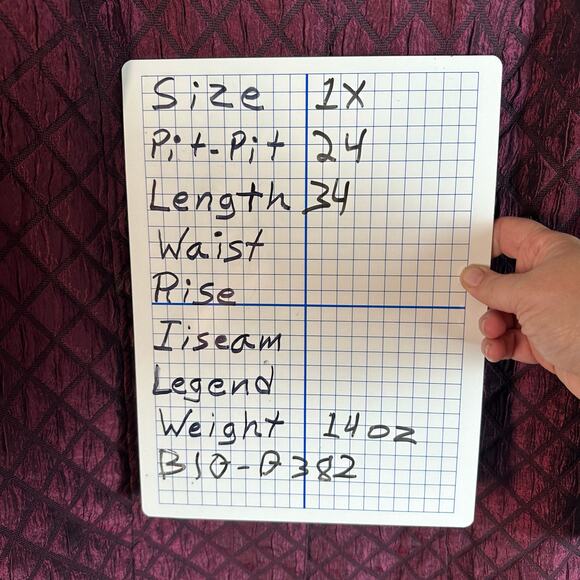 Size 1X
Pit-Pit 24
Length 34
Waist
Rise
Iiseam
Legend
Weight 14oz